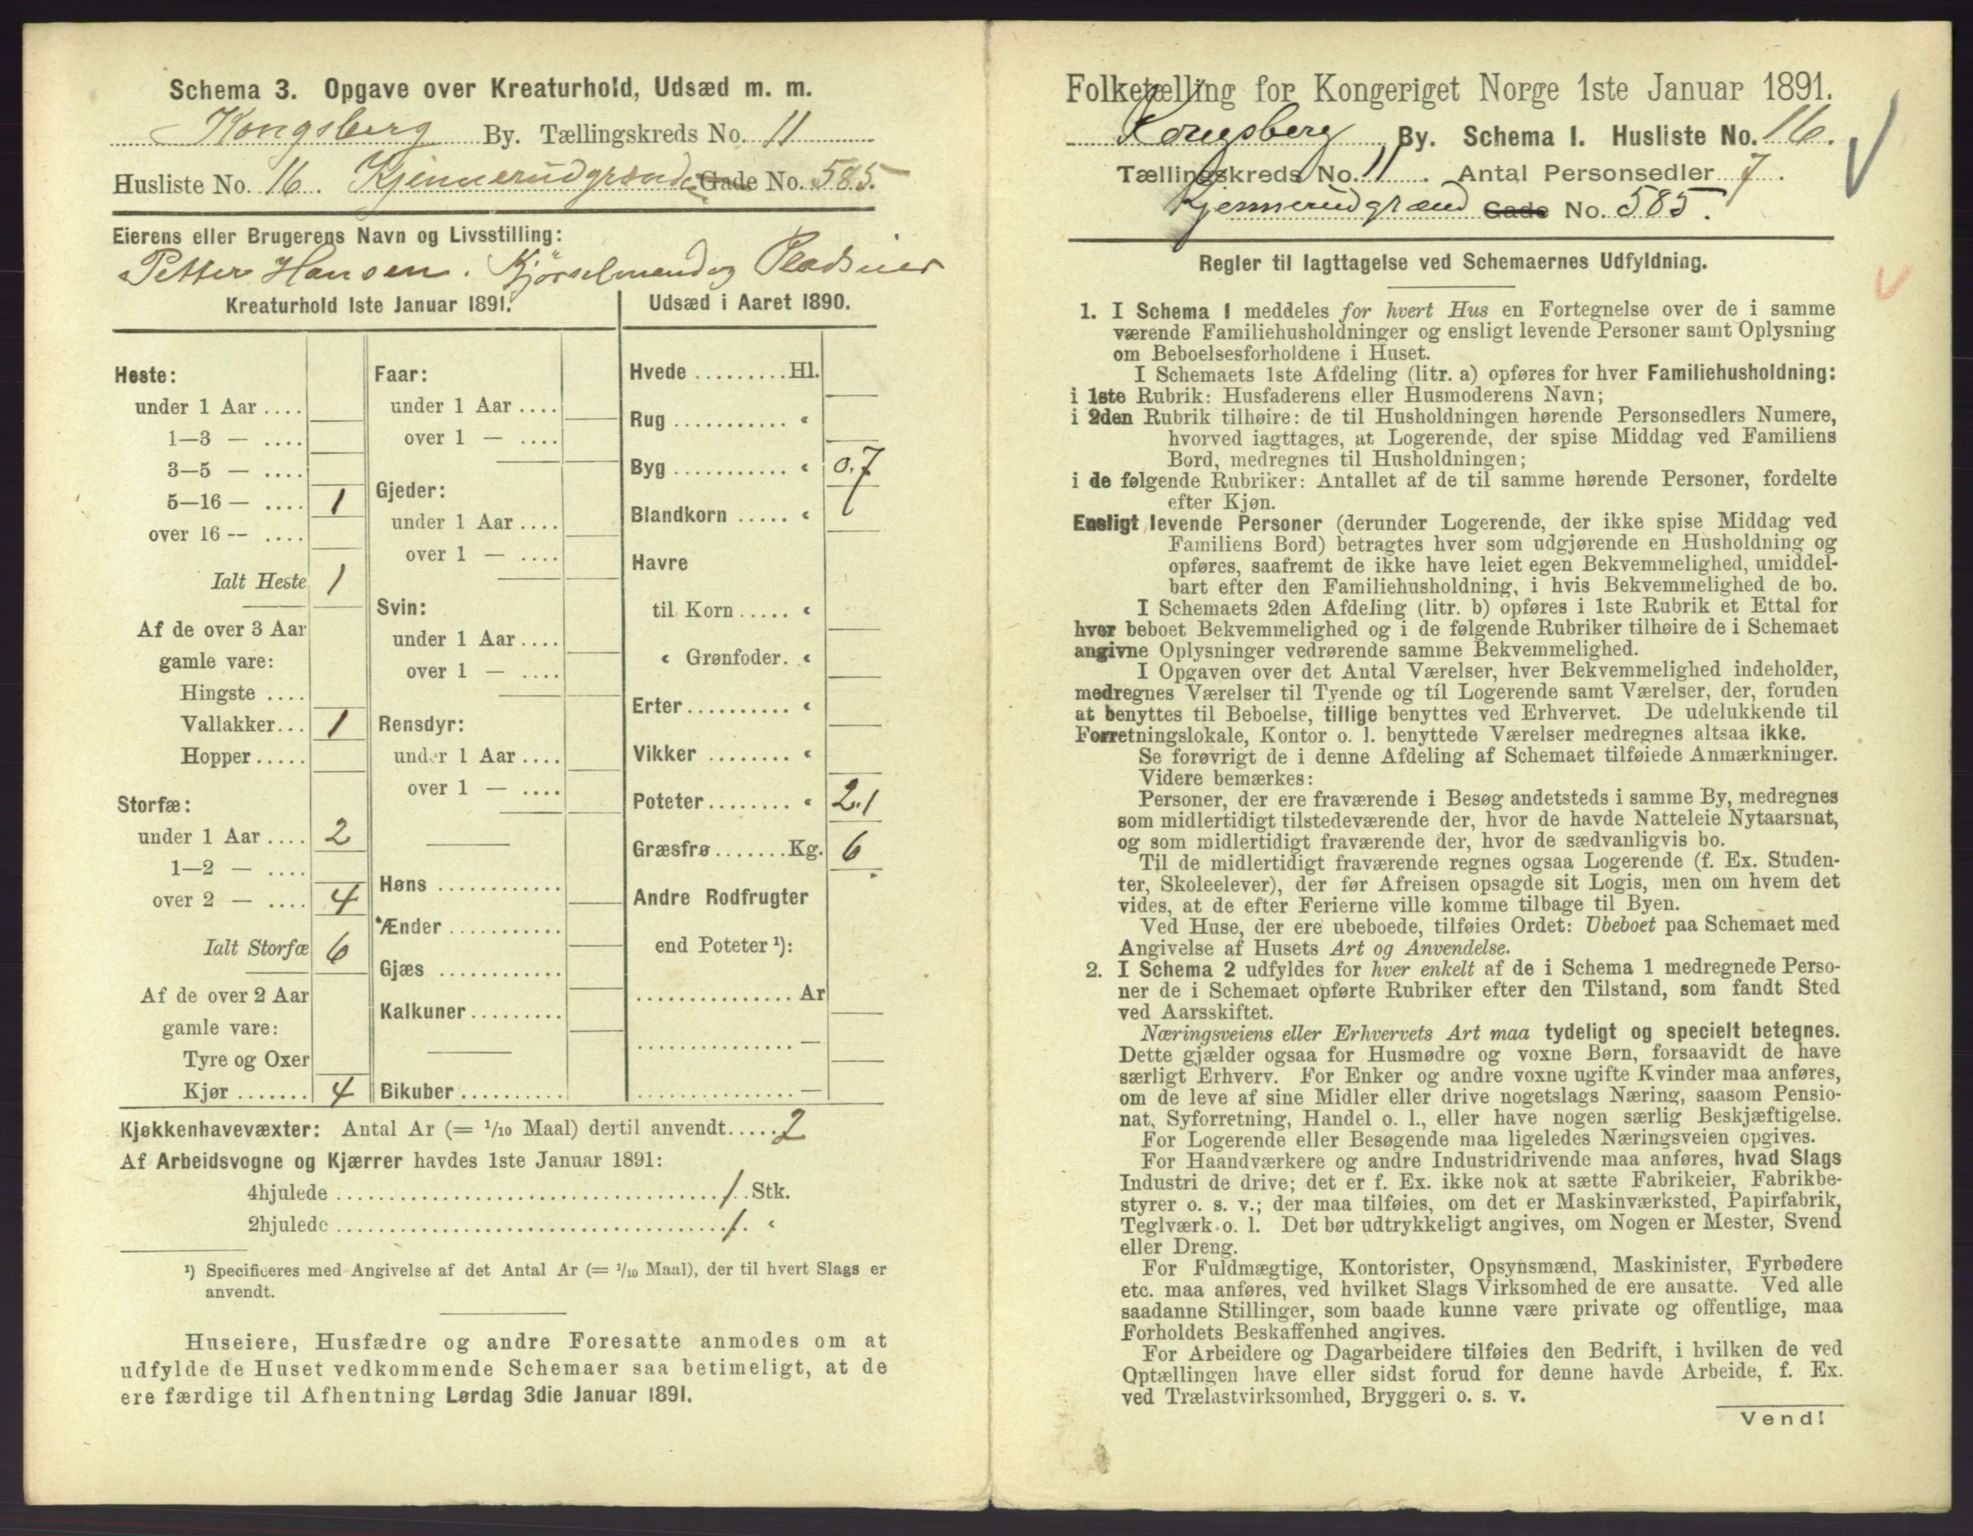 Schema 3. Opgave over Kreaturhold, Udsæd m. m.
Kongsberg By. Tællingskreds No. 11
Husliste No. 16. Kjennerudgrænden Gade No. 585.
Eierens eller Brugerens Navn og Livsstilling:
Petter Hansen. Kjörselmand og Pladseier
Kreaturhold 1ste Januar 1891.
Heste:
under 1 Aar ....
1—3 — ....
3—5 — ....
5—16 — .... 1
over 16 — ....
Ialt Heste 1
Af de over 3 Aar
gamle vare:
Hingste ....
Vallakker... 1
Hopper.....
Storfæ:
under 1 Aar .... 2
1—2 — ....
over 2 — .... 4
Ialt Storfæ 6
Af de over 2 Aar
gamle vare:
Tyre og Oxer
Kjør ....... 4
Faar:
under 1 Aar ....
over 1 — ....
Gjeder:
under 1 Aar ....
over 1 — ....
Svin:
under 1 Aar ....
over 1 — ....
Rensdyr:
under 1 Aar ....
over 1 — ....
Høns ............
Ænder ...........
Gjæs ............
Kalkuner.........
Bikuber..........
Udsæd i Aaret 1890.
Hvede .........Hl.
Rug ........... «
Byg ........... « 0.7
Blandkorn ..... «
Havre
til Korn ..... «
« Grønfoder. «
Erter.......... «
Vikker ........ «
Poteter........ « 2.1
Græsfrø.......Kg. 6
Andre Rodfrugter
end Poteter ¹):
............... Ar
............... —
............... —
Kjøkkenhavevæxter: Antal Ar (= 1/10 Maal) dertil anvendt..... 2
Af Arbeidsvogne og Kjærrer havdes 1ste Januar 1891:
4hjulede ........................ 1 Stk.
2hjulede ........................ 1. «
¹) Specificeres med Angivelse af det Antal Ar (= 1/10 Maal), der til hvert Slags er
anvendt.
Huseiere, Husfædre og andre Foresatte anmodes om at
udfylde de Huset vedkommende Schemaer saa betimeligt, at de
ere færdige til Afhentning Lørdag 3die Januar 1891.
Folketælling for Kongeriget Norge 1ste Januar 1891.
Kongsberg By. Schema 1. Husliste No. 16.
Tællingskreds No. 11. Antal Personsedler 7.
Kjennerudgrænd Gade No. 585.
Regler til Iagttagelse ved Schemaernes Udfyldning.
1. I Schema 1 meddeles for hvert Hus en Fortegnelse over de i samme
værende Familiehusholdninger og ensligt levende Personer samt Oplysning
om Beboelsesforholdene i Huset.
I Schemaets 1ste Afdeling (litr. a) opføres for hver Familiehusholdning:
i 1ste Rubrik: Husfaderens eller Husmoderens Navn;
i 2den Rubrik tilhøire: de til Husholdningen hørende Personsedlers Numere,
hvorved iagttages, at Logerende, der spise Middag ved Familiens
Bord, medregnes til Husholdningen;
i de følgende Rubriker: Antallet af de til samme hørende Personer, fordelte
efter Kjøn.
Ensligt levende Personer (derunder Logerende, der ikke spise Middag ved
Familiens Bord) betragtes hver som udgjørende en Husholdning og
opføres, saafremt de ikke have leiet egen Bekvemmelighed, umiddel-
bart efter den Familiehusholdning, i hvis Bekvemmelighed de bo.
I Schemaets 2den Afdeling (litr. b) opføres i 1ste Rubrik et Ettal for
hver beboet Bekvemmelighed og i de følgende Rubriker tilhøire de i Schemaet
angivne Oplysninger vedrørende samme Bekvemmelighed.
I Opgaven over det Antal Værelser, hver Bekvemmelighed indeholder,
medregnes Værelser til Tyende og til Logerende samt Værelser, der, foruden
at benyttes til Beboelse, tillige benyttes ved Erhvervet. De udelukkende til
Forretningslokale, Kontor o. l. benyttede Værelser medregnes altsaa ikke.
Se forøvrigt de i denne Afdeling af Schemaet tilføiede Anmærkninger.
Videre bemærkes:
Personer, der ere fraværende i Besøg andetsteds i samme By, medregnes
som midlertidigt tilstedeværende der, hvor de havde Natteleie Nytaarsnat,
og som midlertidigt fraværende der, hvor de sædvanligvis bo.
Til de midlertidigt fraværende regnes ogsaa Logerende (f. Ex. Studen-
ter, Skoleelever), der før Afreisen opsagde sit Logis, men om hvem det
vides, at de efter Ferierne ville komme tilbage til Byen.
Ved Huse, der ere ubeboede, tilføies Ordet: Ubeboet paa Schemaet med
Angivelse af Husets Art og Anvendelse.
2. I Schema 2 udfyldes for hver enkelt af de i Schema 1 medregnede Perso-
ner de i Schemaet opførte Rubriker efter den Tilstand, som fandt Sted
ved Aarsskiftet.
Næringsveiens eller Erhvervets Art maa tydeligt og specielt betegnes.
Dette gjælder ogsaa for Husmødre og voxne Børn, forsaavidt de have
særligt Erhverv. For Enker og andre voxne ugifte Kvinder maa anføres,
om de leve af sine Midler eller drive nogetslags Næring, saasom Pensio-
nat, Syforretning, Handel o. l., eller have nogen særlig Beskjæftigelse.
For Logerende eller Besøgende maa ligeledes Næringsveien opgives.
For Haandværkere og andre Industridrivende maa anføres, hvad Slags
Industri de drive; det er f. Ex. ikke nok at sætte Fabrikeier, Fabrikbe-
styrer o. s. v.; der maa tilføies, om det er Maskinværksted, Papirfabrik,
Teglværk o. l. Det bør udtrykkeligt angives, om Nogen er Mester, Svend
eller Dreng.
For Fuldmægtige, Kontorister, Opsynsmænd, Maskinister, Fyrbødere
etc. maa anføres, ved hvilket Slags Virksomhed de ere ansatte. Ved alle
saadanne Stillinger, som baade kunne være private og offentlige, maa
Forholdets Beskaffenhed angives.
For Arbeidere og Dagarbeidere tilføies den Bedrift, i hvilken de ved
Optællingen have eller sidst forud for denne havde Arbeide, f. Ex.
ved Trælastvirksomhed, Bryggeri o. s. v.
Vend!